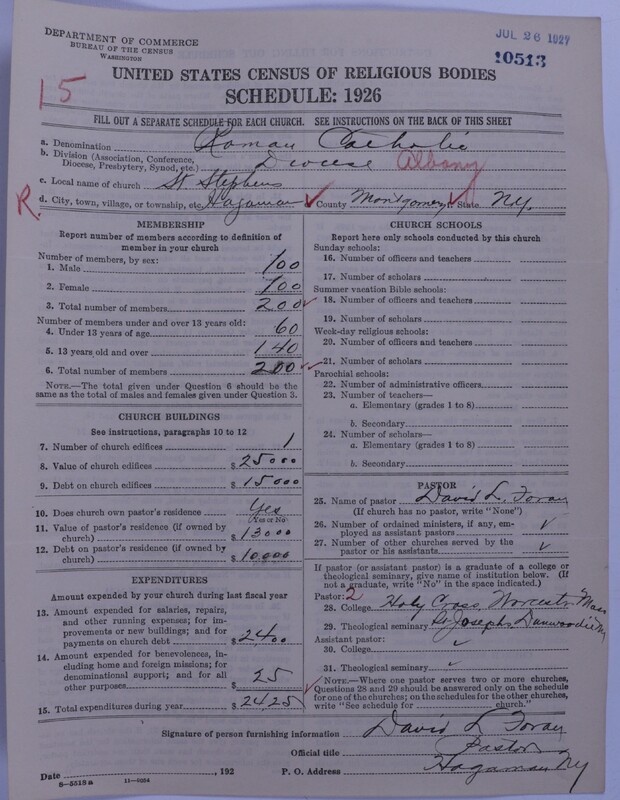 DEPARTMENT OF COMMERCE
BUREAU OF THE CENSUS
WASHINGTON
JUL 26 1927
10513
UNITED STATES CENSUS OF RELIGIOUS BODIES
SCHEDULE: 1926
15
FILL OUT A SEPARATE SCHEDULE FOR EACH CHURCH. SEE INSTRUCTIONS ON THE BACK OF THIS SHEET
a. Denomination Roman Catholic
b. Division (Association, Conference, Diocese, Presbytery, Synod, etc.) Diocese Albany
c. Local name of church St Stephens
R. d. City, town, village, or township, etc. Hagaman County Montgomery State N.Y.
MEMBERSHIP
Report number of members according to definition of
member in your church
Number of members, by sex:
1. Male 100
2. Female 100
3. Total number of members 200
Number of members under and over 13 years old:
4. Under 13 years of age 60
5. 13 years old and over 140
6. Total number of members 200
NOTE.—The total given under Question 6 should be
same as the total of males and females given under Question 3.
CHURCH BUILDINGS
See instructions, paragraphs 10 to 12
7. Number of church edifices 1
8. Value of church edifices $ 25000
9. Debt on church edifices $ 15000
10. Does church own pastor's residence Yes
(Yes or No)
11. Value of pastor's residence (if owned by
church) $ 13000
12. Debt on pastor's residence (if owned by
church) $ 10,000
EXPENDITURES
Amount expended by your church during last fiscal year
13. Amount expended for salaries, repairs,
and other running expenses; for im-
provements or new buildings; and for
payments on church debt $ 2400
14. Amount expended for benevolences,
including home and foreign missions; for
denominational support; and for all
other purposes $ 25
15. Total expenditures during year $ 2425
CHURCH SCHOOLS
Report here only schools conducted by this church
Sunday schools:
16. Number of officers and teachers
17. Number of scholars
Summer vacation Bible schools:
18. Number of officers and teachers
19. Number of scholars
Week-day religious schools:
20. Number of officers and teachers
21. Number of scholars
Parochial schools:
22. Number of administrative officers
23. Number of teachers—
a. Elementary (grades 1 to 8)
b. Secondary
24. Number of scholars—
a. Elementary (grades 1 to 8)
b. Secondary
PASTOR
25. Name of pastor David L. Foran
(If church has no pastor, write "None")
26. Number of ordained ministers, if any, em-
ployed as assistant pastors
27. Number of other churches served by the
pastor or his assistants
If pastor (or assistant pastor) is a graduate of a college or
theological seminary, give name of institution below. (If
not a graduate, write "No" in the space indicated.)
Pastor: 2
28. College Holy Cross Worcester Mass
29. Theological seminary St Josephs Dunwoodie NY
Assistant pastor:
30. College
31. Theological seminary
NOTE.—Where one pastor serves two or more churches,
Questions 28 and 29 should be answered only on the schedule
for one of the churches; on the schedules for the other churches,
write "See schedule for church."
Signature of person furnishing information David L Foran
Official title Pastor
Date , 192 P. O. Address Hagaman NY
8-5518a 11-9254